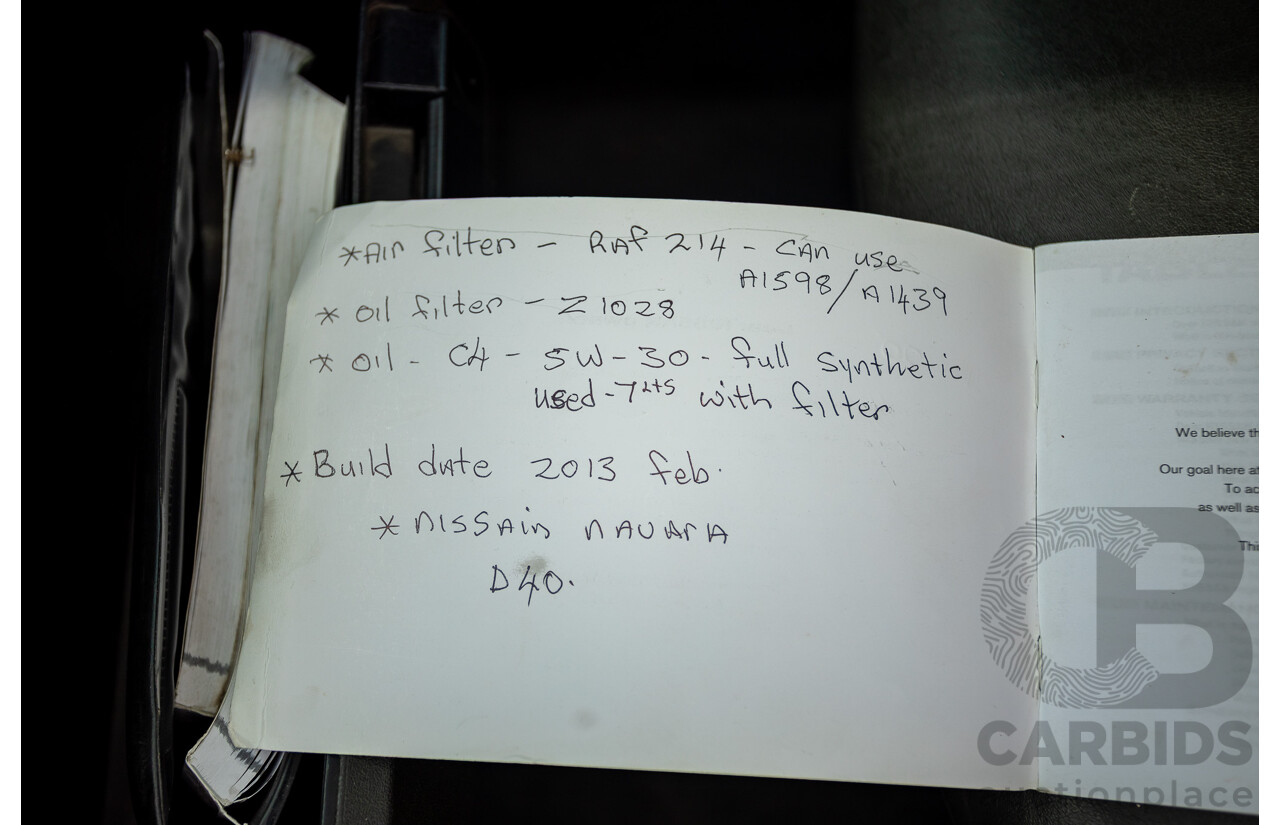 *Air filter - RAF 214 - CAN use
A1598/A1439
* Oil filter - Z1028
* Oil - C4 - 5W-30 - full synthetic
used - 7Lts with filter
* Build date 2013 feb.
* NISSAIN NAVARA
D40.
We believe th
Our goal here at
To ac
as well as
Thi
CB
CARBIDS
auctionplace